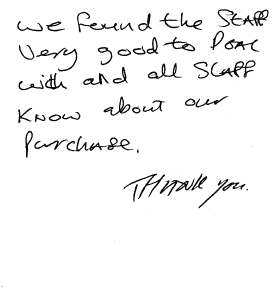 we found the Staff
very good to Deal
with and all Staff
Know about our
purchase.
Thank you.